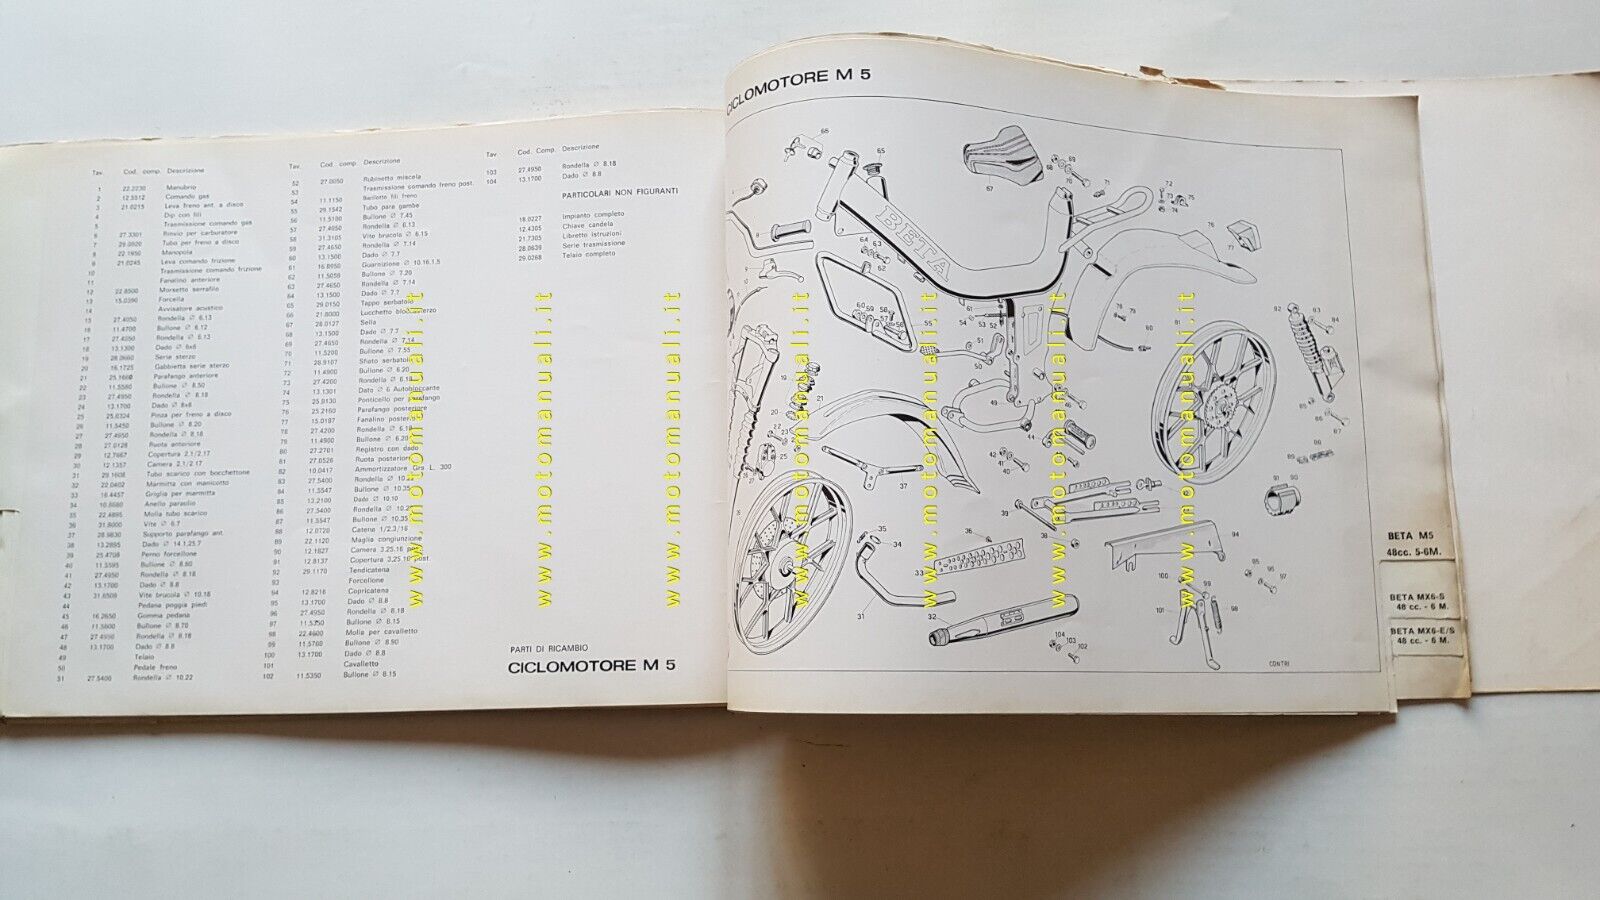 Tav. Cod. comp. Descrizione
1 22.2230 Manubrio
2 12.5512 Comando gas
3 21.0215 Leva freno ant. a disco
4 Dip con fili
5 Trasmissione comando gas
6 27.3301 Rinvio per carburatore
7 29.0920 Tubo per freno a disco
8 22.1950 Manopola
9 21.0245 Leva comando frizione
10 Trasmissione comando frizione
11 Fanalino anteriore
12 22.8500 Morsetto serrafilo
13 15.0390 Forcella
14 Avvisatore acustico
15 27.4050 Rondella Ø 6.13
16 11.4700 Bullone Ø 6.12
17 27.4050 Rondella Ø 6.13
18 13.1300 Dado Ø 6x6
19 28.0660 Serie sterzo
20 16.1725 Gabbietta serie sterzo
21 Parafango anteriore
22 11.5580 Bullone Ø 8.50
23 27.4950 Rondella Ø 8.18
24 13.1700 Dado Ø 8x8
25 25.0324 Pinza per freno a disco
26 11.5450 Bullone Ø 8.20
27 27.4950 Rondella Ø 8.18
28 27.0128 Ruota anteriore
29 12.7667 Copertura 2.1/2.17
30 12.1357 Camera 2.1/2.17
31 29.1608 Tubo scarico con bocchettone
32 22.0402 Marmitta con manicotto
33 16.4457 Griglia per marmitta
34 10.8580 Anello paraolio
35 22.4895 Molla tubo scarico
36 31.8000 Vite Ø 6.7
37 28.9830 Supporto parafango ant.
38 13.2895 Dado Ø 14.1,25.7
39 25.4708 Perno forcellone
40 11.5595 Bullone Ø 8.60
41 27.4950 Rondella Ø 8.18
42 13.1700 Dado Ø 8.8
43 31.6509 Vite brucola Ø 10.18
44 Pedana poggia piedi
45 16.2650 Gomma pedana
46 11.5600 Bullone Ø 8.70
47 27.4950 Rondella Ø 8.18
48 13.1700 Dado Ø 8.8
49 Telaio
50 Pedale freno
51 27.5400 Rondella Ø 10.22
Tav. Cod. comp. Descrizione
52 27.0050 Rubinetto miscela
53 Trasmissione comando freno post.
54 11.1150 Barilotto fili freno
55 29.1542 Tubo para gambe
56 11.5100 Bullone Ø 7.45
57 27.4050 Rondella Ø 6.13
58 31.3105 Vite brucola Ø 6.15
59 27.4650 Rondella Ø 7.14
60 13.1500 Dado Ø 7.7
61 16.8950 Guarnizione Ø 10.16.1,5
62 11.5058 Bullone Ø 7.20
63 27.4650 Rondella Ø 7.14
64 13.1500 Dado Ø 7.7
65 29.0150 Tappo serbatoio
66 21.8000 Lucchetto bloccasterzo
67 28.0127 Sella
68 13.1500 Dado Ø 7.7
69 27.4650 Rondella Ø 7.14
70 11.5200 Bullone Ø 7.55
71 28.9107 Sfiato serbatoio
72 11.4900 Bullone Ø 6.20
73 27.4200 Rondella Ø 6.18
74 13.1301 Dato Ø 6 Autobloccante
75 25.9130 Ponticello per parafango
76 25.2160 Parafango posteriore
77 15.0197 Fanalino posteriore
78 27.4200 Rondella Ø 6.18
79 11.4900 Bullone Ø 6.20
80 27.2701 Registro con dado
81 27.0526 Ruota posteriore
82 10.0417 Ammortizzatore Gra L. 300
83 27.5400 Rondella Ø 10.22
84 11.5547 Bullone Ø 10.35
85 13.2100 Dado Ø 10.10
86 27.5400 Rondella Ø 10.22
87 11.5547 Bullone Ø 10.35
88 12.0720 Catena 1/2.3/16
89 22.1120 Maglia congiunzione
90 12.1827 Camera 3.25.16 post.
91 12.8137 Copertura 3.25.16 post.
92 29.1170 Tendicatena
93 Forcellone
94 12.8216 Copricatena
95 13.1700 Dado Ø 8.8
96 27.4950 Rondella Ø 8.18
97 11.5350 Bullone Ø 8.15
98 22.4600 Molla per cavalletto
99 11.5760 Bullone Ø 8.90
100 13.1700 Dado Ø 8.8
101 Cavalletto
102 11.5350 Bullone Ø 8.15
Tav. Cod. Comp. Descrizione
103 27.4950 Rondella Ø 8.18
104 13.1700 Dado Ø 8.8
PARTICOLARI NON FIGURANTI
18.0227 Impianto completo
12.4305 Chiave candela
21.7305 Libretto istruzioni
28.0639 Serie trasmissione
29.0268 Telaio completo
PARTI DI RICAMBIO
CICLOMOTORE M 5
CICLOMOTORE M 5
BETA
CONTRI
BETA M5
48cc. 5-6M.
BETA MX6-S
48 cc. - 6 M.
BETA MX6-E/S
48 cc. - 6 M.
www.motomanuali.it
www.motomanuali.it
www.motomanuali.it
www.motomanuali.it
www.motomanuali.it
www.motomanuali.it
www.motomanuali.it